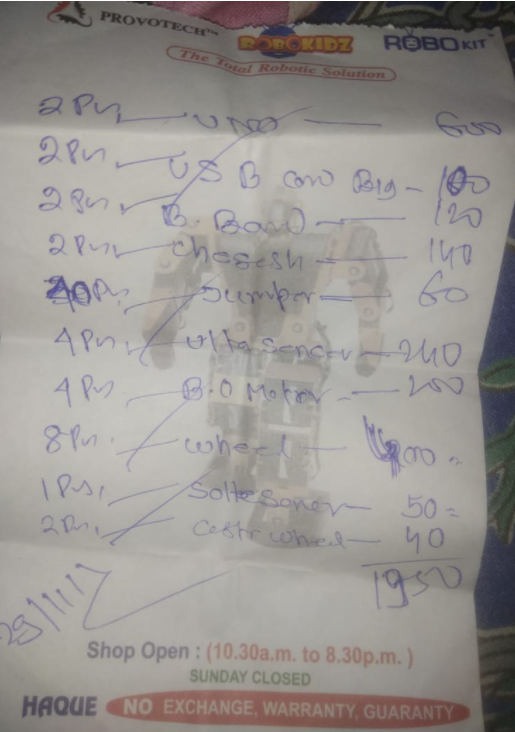 PROVOTECH™
ROBOKIDZ
ROBOKIT™
The Total Robotic Solution
2 Pcs, — UNO — 600
2 Pcs, — USB Card Big — 100
2 Pcs, — B. Board — 120
2 Pcs, — Chasesh — 140
Pcs, — Jumper — 60
4 Pcs, — Ultasencer — 240
4 Pcs — B.O Motor — 200
8 Pcs. — wheel — 400 =
1 Pcs, — Solte Soner — 50 =
2 Pcs, — Castr wheel — 40
1950
29/11/
Shop Open : (10.30a.m. to 8.30p.m. )
SUNDAY CLOSED
HAQUE NO EXCHANGE, WARRANTY, GUARANTY